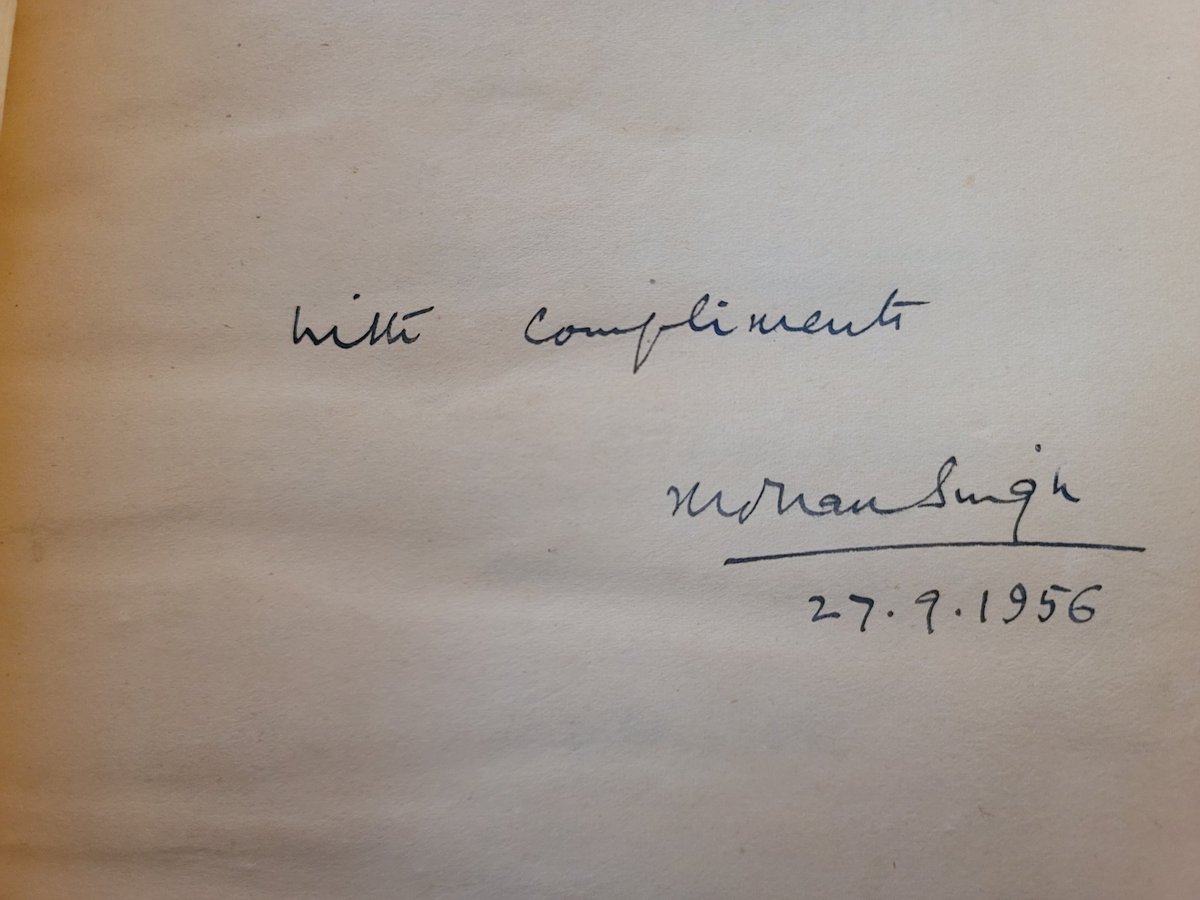 with compliments
Mohan Singh
27.9.1956